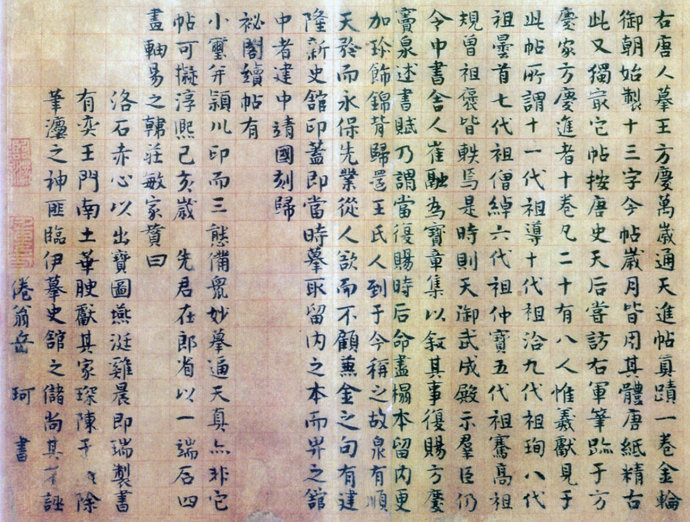 右唐人摹王方慶萬歲通天進帖真蹟一卷金輪
御朝始製十三字今帖歲月皆用其體唐紙精古
此又獨最它帖按唐史天后嘗訪右軍筆蹟于方
慶家方慶進者十卷凡二十有八人惟羲獻見于
此帖所謂十一代祖導十代祖洽九代祖珣八代
祖曇首七代祖僧綽六代祖仲寶五代祖騫高祖
規曾祖褒皆軼焉是時則天御武成殿示羣臣仍
令中書舍人崔融為寶章集以敘其事復賜方慶
竇泉述書賦乃謂當復賜時后命盡榻本留內更
加珍飾錦背歸還王氏人到于今稱之故泉有順
天矜而永保先業從人欲而不顧兼金之句有建
隆新史館印蓋即當時摹取留內之本而畀之館
中者建中靖國刻歸
祕閣續帖有
小璽并潁川印而三態備衆妙摹逼天真亦非它
帖可擬淳熙己亥歲 先君在郎省以一端石四
畫軸易之韓莊敏家贊曰
洛石赤心以出寶圖燕涎雞晨即瑞製書
有奕王門南土華腴獻其家琛陳于 除
筆瀍之神匪臨伊摹史館之儲尚其 誣
倦翁岳 珂 書